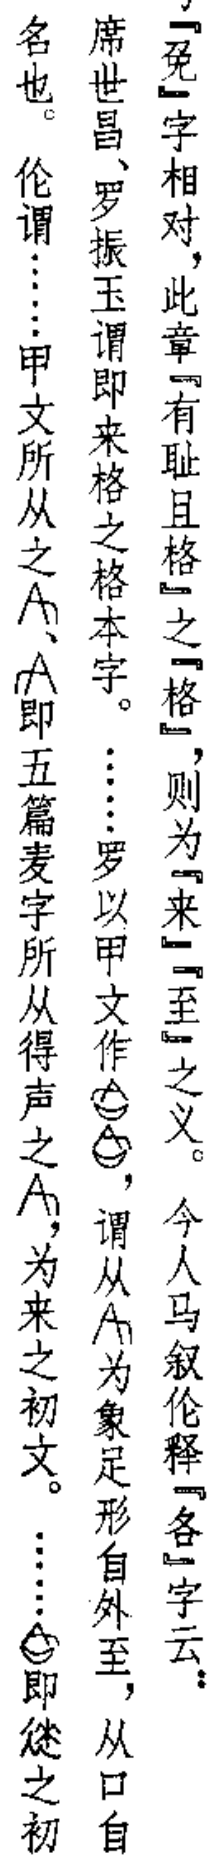 『免』字相对，此章『有耻且格』之『格』，则为『来』『至』之义。今人马叙伦释『各』字云：
席世昌、罗振玉谓即来格之格本字。……罗以甲文作，谓从为象足形自外至，从口自
名也。伦谓……甲文所从之、即五篇麦字所从得声之，为来之初文。……即徕之初